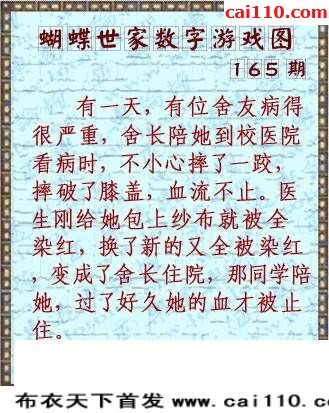 cai110.com
蝴蝶世家数字游戏图
165期
有一天，有位舍友病得
很严重，舍长陪她到校医院
看病时，不小心摔了一跤，
摔破了膝盖，血流不止。医
生刚给她包上纱布就被全
染红，换了新的又全被染红
，变成了舍长住院，那同学陪
她，过了好久她的血才被止
住。
布衣天下首发 www.cai110.c